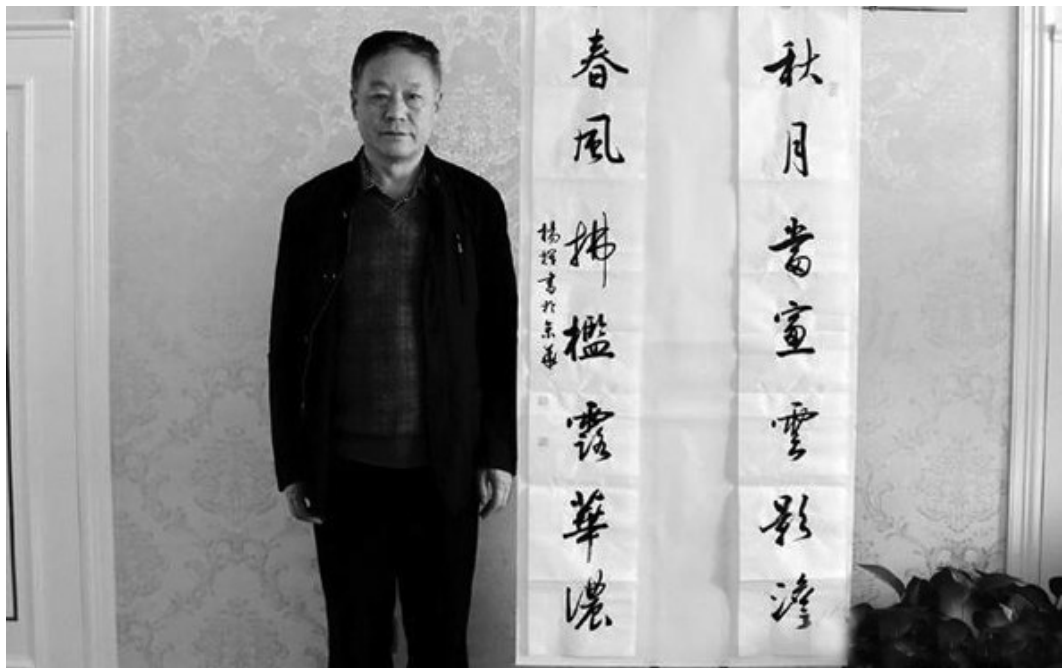 秋月當雲影澹
春風拂檻露華濃
楊書於京華